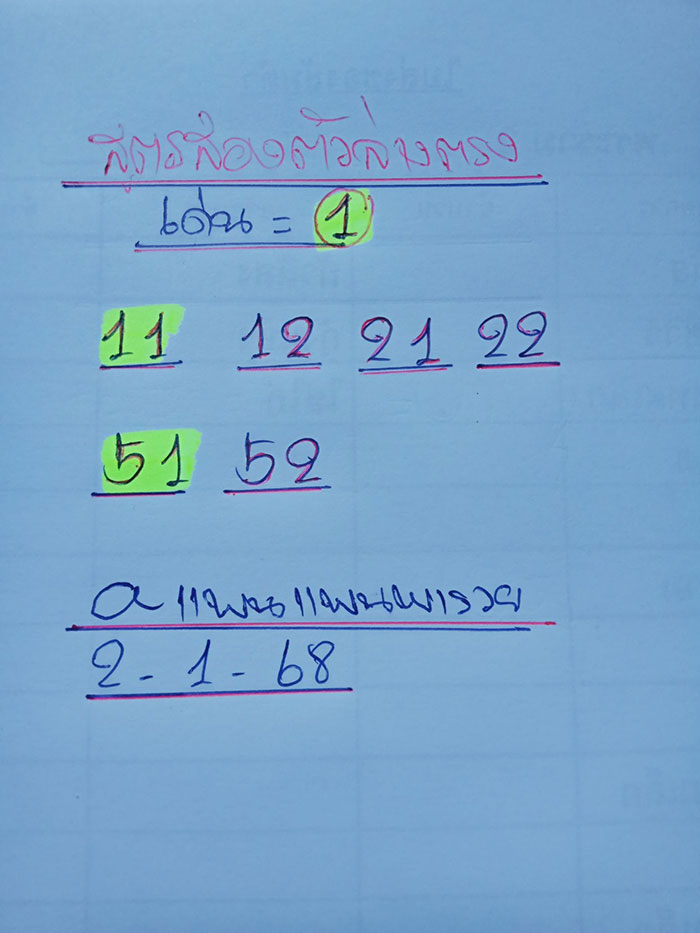 สูตรสองตัวล่างตรง
เด่น = 1
11 12 21 22
51 52
a แพนแพนพารวย
2-1-68